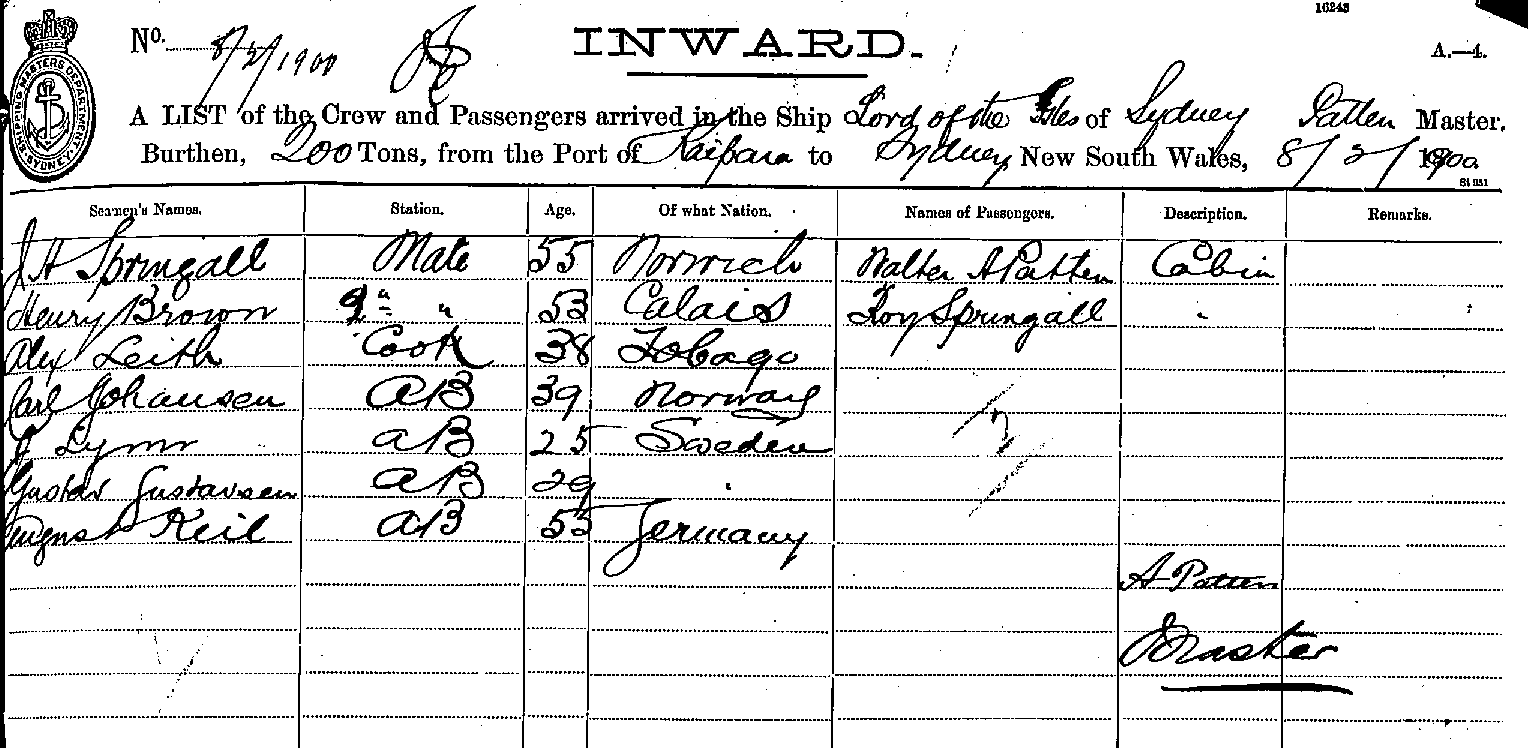 16243
No. 8/2/1900 INWARD. A.—4.
SHIPPING MASTERS DEPARTMENT SYDNEY
A LIST of the Crew and Passengers arrived in the Ship Lord of the Isles of Sydney Patten Master,
Burthen, 200 Tons, from the Port of Kaipara to Sydney, New South Wales, 8/2/1900
Seamen's Names. Station. Age. Of what Nation. Names of Passengers. Description. Remarks.
J H Springall Mate 55 Norwich Walter A Patten Cabin
Henry Brown 2nd " 53 Calais Roy Springall "
Alex Leith Cook 38 Tobago
Carl Johansen AB 39 Norway
Lymr AB 25 Sweden
Gustav Gustavsen AB 29 "
August Keil AB 55 Germany
A Patten
Master